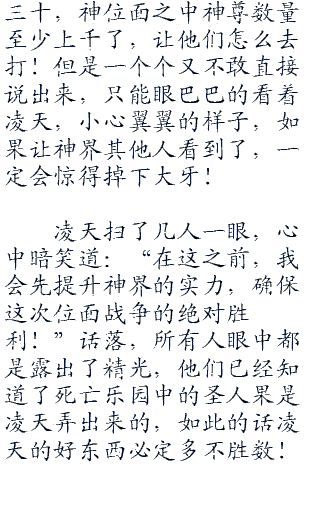 三十，神位面之中神尊数量
至少上千了，让他们怎么去
打！但是一个个又不敢直接
说出来，只能眼巴巴的看着
凌天，小心翼翼的样子，如
果让神界其他人看到了，一
定会惊得掉下大牙！
凌天扫了几人一眼，心
中暗笑道：“在这之前，我
会先提升神界的实力，确保
这次位面战争的绝对胜
利！”话落，所有人眼中都
是露出了精光，他们已经知
道了死亡乐园中的圣人果是
凌天弄出来的，如此的话凌
天的好东西必定多不胜数！